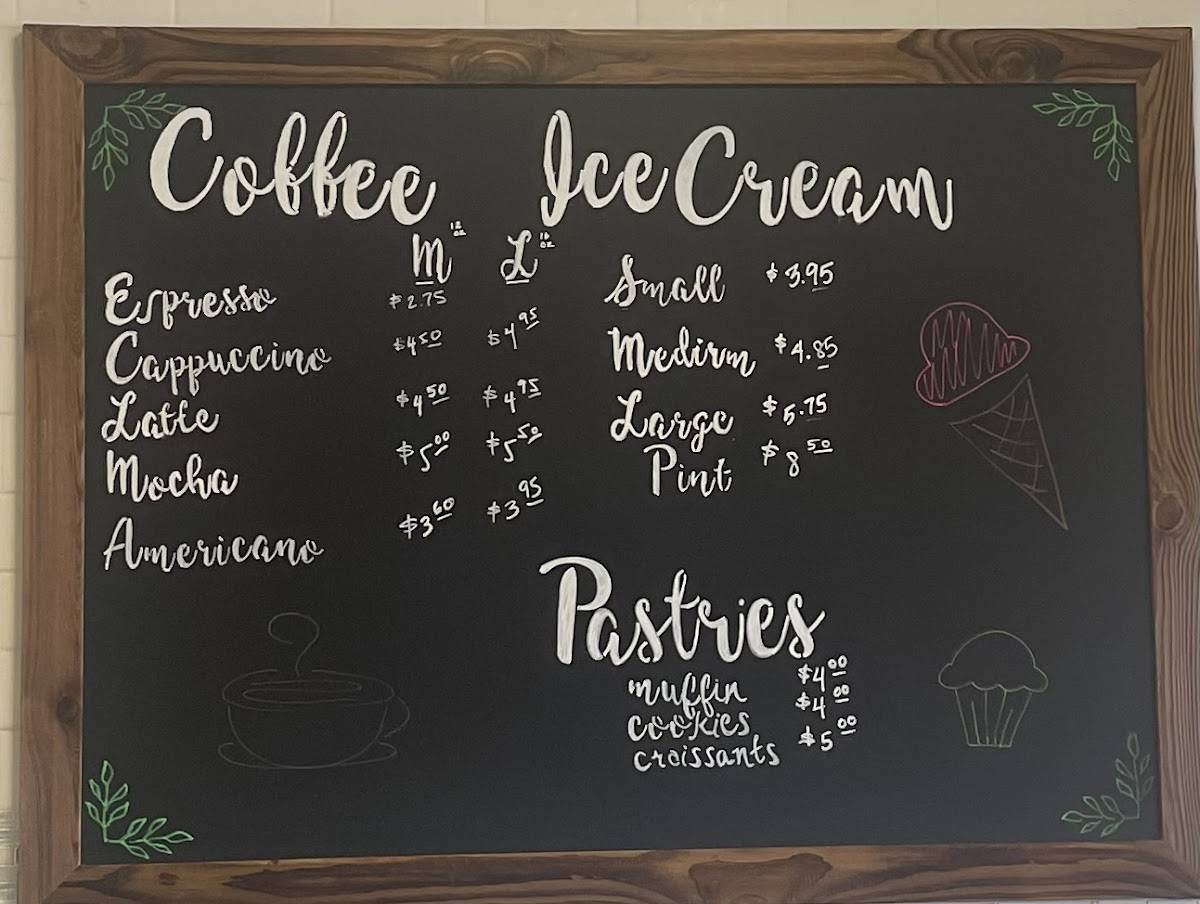 Coffee
M 12 oz L 16 oz
Espresso $2.75
Cappuccino $4.50 $4.95
Latte $4.50 $4.95
Mocha $5.00 $5.50
Americano $3.60 $3.95
Ice Cream
Small $3.95
Medium $4.85
Large $5.75
Pint $8.50
Pastries
muffin $4.00
cookies $4.00
croissants $5.00